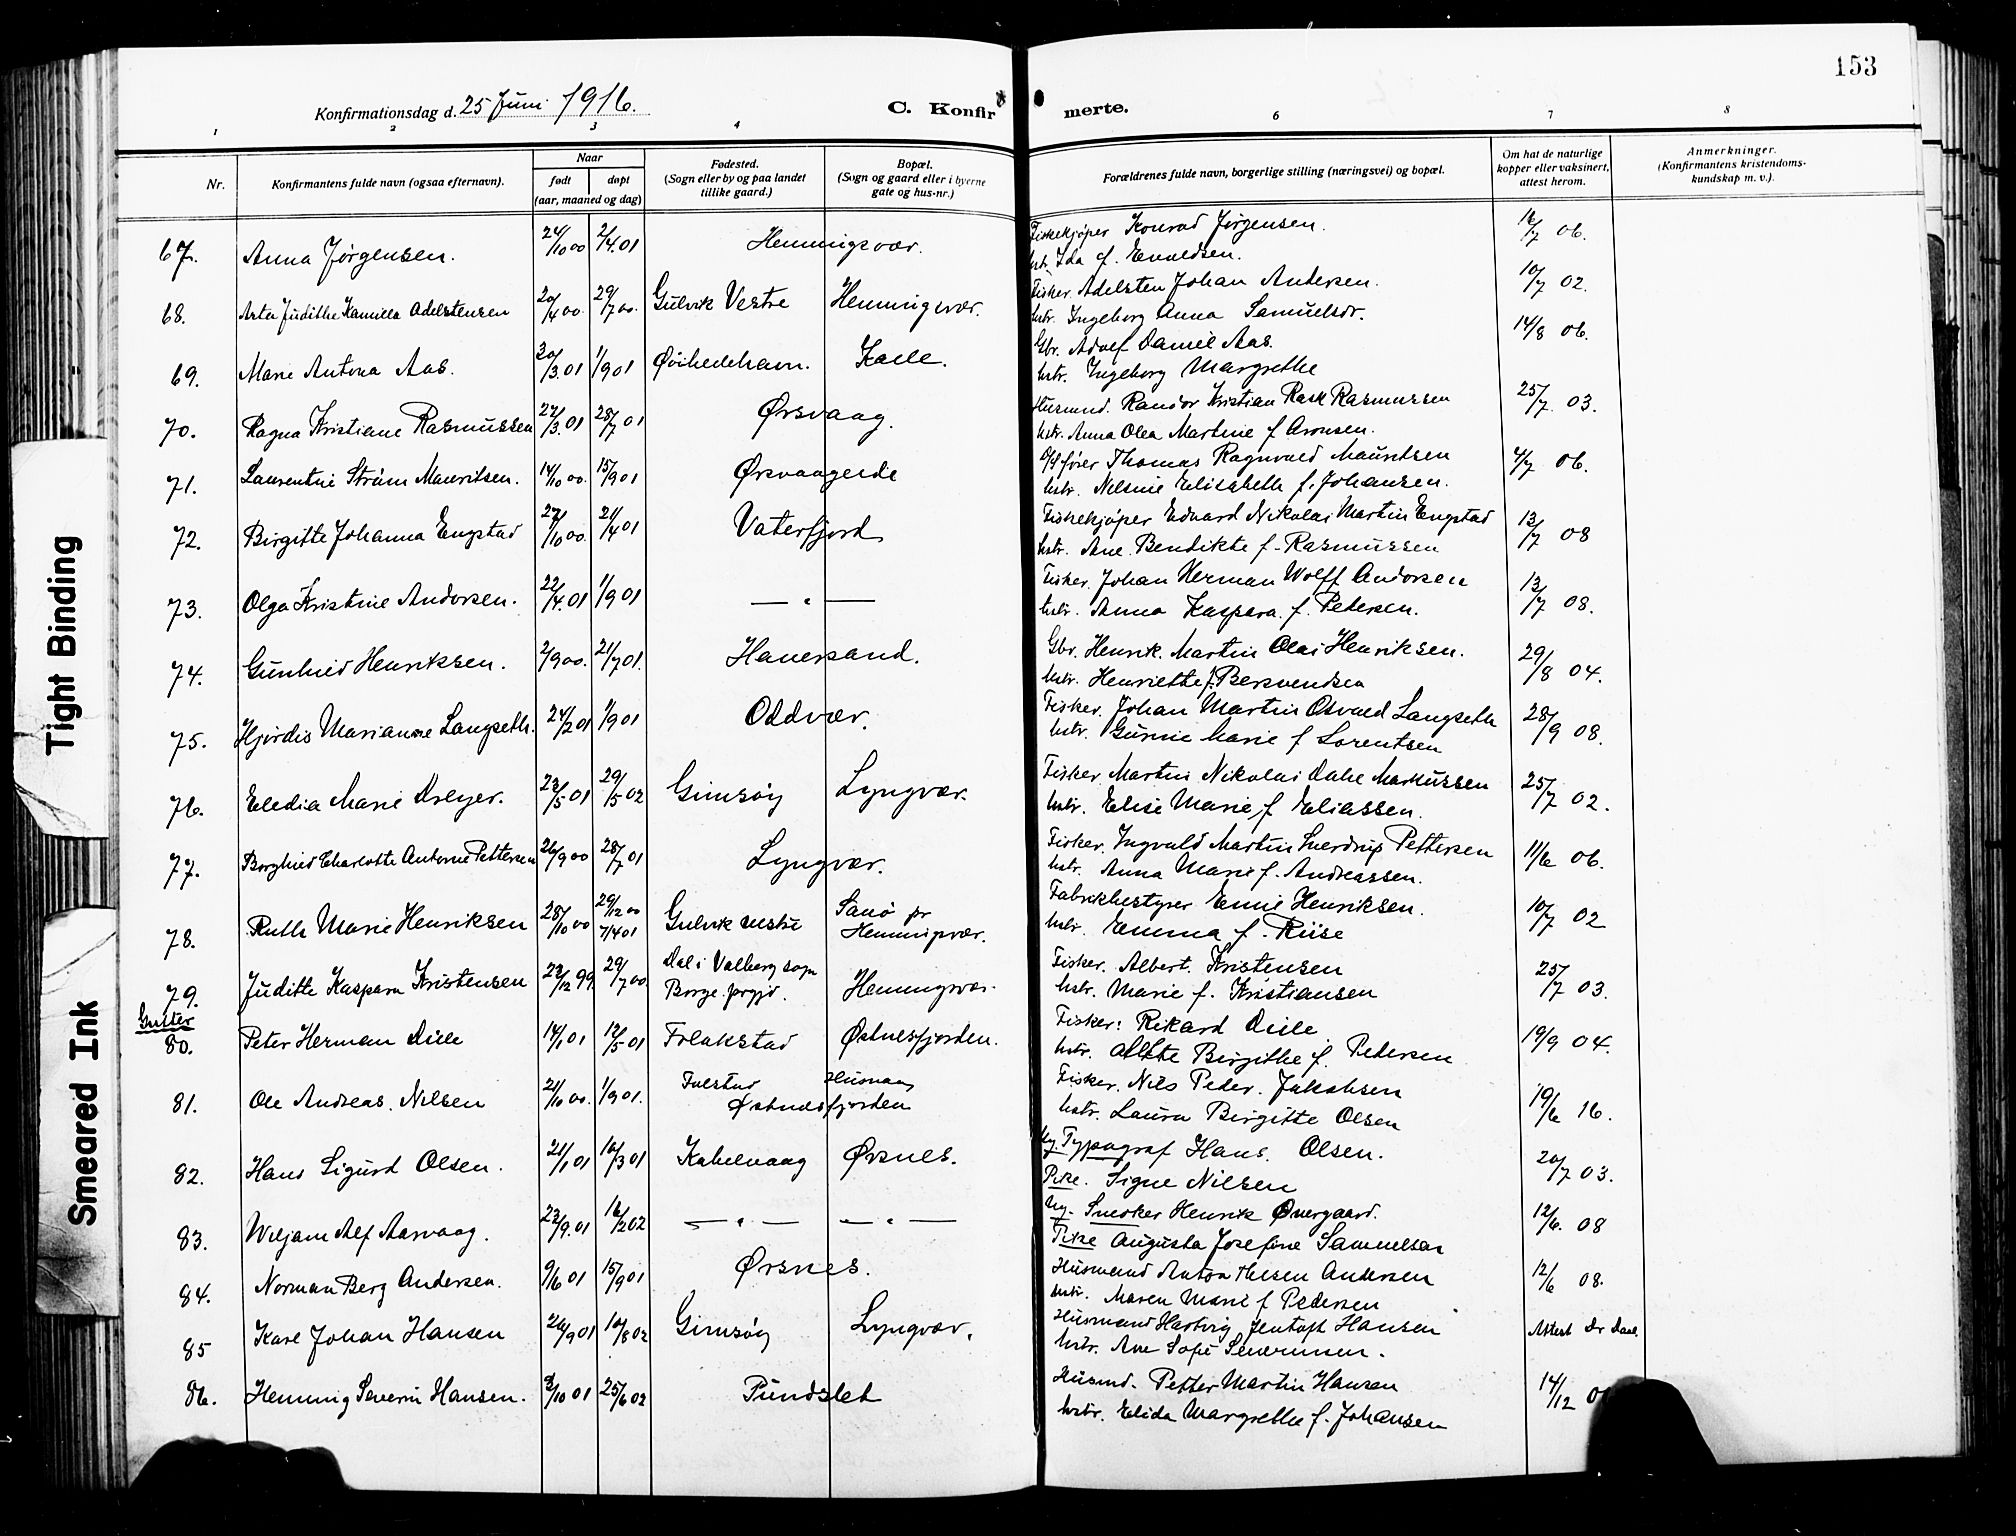 153
Konfirmationsdag d. 25 Juni 1916.
C. Konfirmerte.
1 2 3 4 6 7 8
Nr. Konfirmantens fulde navn (ogsaa efternavn). Naar født døpt (aar, maaned og dag) Fødested. (Sogn eller by og paa landet tillike gaard.) Bopæl. (Sogn og gaard eller i byerne gate og hus-nr.) Forældrenes fulde navn, borgerlige stilling (næringsvei) og bopæl. Om hat de naturlige kopper eller vaksinert, attest herom. Anmerkninger. (Konfirmantens kristendomskundskap m. v.).
67. Anna Jørgensen. 24/10 00 2/4.01 Henningsvær. Fiskekjøper Konrad Jørgensen. 16/7 06.
hstr. Ida f. Evaldsen.
68. Asta Judithe Kamilla Adelstensen 20/4 00. 29/7 00. Gulvik Vestre Henningsvær. Fisker. Adelsten Johan Andersen. 10/7 02.
hstr. Ingeborg Anna Samuelsdr.
69. Marie Antona Aas. 30/3.01 1/9 01 Øihellehavn. Kalle. Gbr. Adolf Daniel Aas. 14/8 06.
hstr. Ingeborg Margrethe
70. Ragna Kristiane Rasmussen 27/3.01 28/7 01 Ørsvaag. Husmnd. Randor Kristian Rask Rasmussen 25/7 03.
hstr. Anna Olea Martine f Aronsen.
71. Laurentine Strøm Mauritsen. 14/10 00. 15/9 01 Ørsvaagerde D/sfører Thomas Ragnvald Mauritsen 4/7 06.
hstr. Nelsine Elisabeth f. Johansen.
72. Birgitte Johanna Engstad 27/10 00. 21/4 01 Vaterfjord Fiskekjøper Edvard Nikolai Martin Engstad 13/7 08
hstr. Ane Bendikte f. Rasmussen
73. Olga Kristine Andorsen. 22/4.01 1/9 01 — " — Fisker. Johan Herman Wolff Andorsen 13/7 08.
hstr. Anna Kaspara f. Petersen.
74. Gunhild Henriksen. 2/9 00. 21/7 01. Hanersand. Gbr. Henrik Martin Olai Henriksen. 29/8 04.
hstr. Henriette f. Bersvendsen
75. Hjørdis Marianne Langseth. 24/2 01 1/9 01 Oddvær. Fisker. Johan Martin Osvald Langseth 28/9 08.
hstr. Gurine Marie f Lorentsen
76. Eledia Marie Dreyer. 23/5 01 29/5 02 Gimsøy Lyngvær. Fisker Martin Nikolai Dahl Markussen 25/7 02.
hstr. Elise Marie f Eliassen.
77. Borghild Charlotte Antonie Pettersen 26/9 00 28/7 01 Lyngvær. Fisker. Ingvald Martin Sverdrup Pettersen 11/6 06.
hstr. Anna Marie f. Andreassen.
78. Ruth Marie Henriksen 28/10 00 29/12 00 7/4 01 Gulvik vestre Sanø pr Henningsvær. Fabrikbestyrer Emil Henriksen. 10/7 02
hstr. Emma f. Riise
79. Juditte Kaspara Kristensen 23/12 99. 29/7 00. Dal i Valberg sogn Borge prgjd. Henningsvær. Fisker. Albert. Kristensen 25/7 03.
hstr. Marie f. Kristiansen
Gutter
80. Peter Herman Lille 14/1 01 12/5 01 Flakstad Østnesfjorden. Fisker: Rikard Lille 19/9 04.
hstr. Alette Birgithe f. Pedersen
81. Ole Andreas. Nilsen 21/10 00. 1/9 01. Østnesfjorden Fisker. Nils Peder. Jakobsen 19/6 16.
hstr. Laura Birgitte Olsen
82. Hans Sigurd Olsen. 21/1 01 10/3 01 Kabelvaag Ørsnes. Ug. Typograf Hans. Olsen. 20/7 03.
Pike. Signe Nilsen
83. Wiljam Alf Aarvaag. 23/9.01 16/2 02 — " — — " — Ug. Snedker Henrik Overgaard. 12/6. 08
Pike Augusta Josefine Samuelsen
84. Norman Berg Andersen. 9/6 01 15/9 01 Ørsnes. Husmand Anton Thesen Andersen 12/6 08.
hstr. Maren Marie f Pedersen
85 Karl Johan Hansen 26/9 01 10/8 02 Gimsøy Lyngvær. Husmand Hartvig Jentoft Hansen Attest Dr Daae.
hstr. Ane Sofie Severinsen.
86. Henning Severin Hansen. 3/10 01 25/6 02 Pundslet Husmd. Petter Martin Hansen 14/12
hstr. Elida Margrethe f. Johansen
Tight Binding
Smeared Ink